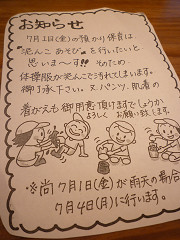 お知らせ
7月1日(金)の預かり保育は
泥んこあそび♥を行いたいと
思いま〜す!! そのため
体操服が泥んこで汚れてしまいます。
御了承下さい。又、パンツ、肌着の
着がえも御用意頂けますでしょうか。
よろしく お願い致します
※尚7月1日(金)が雨天の場合
7月4日(月)に行います。